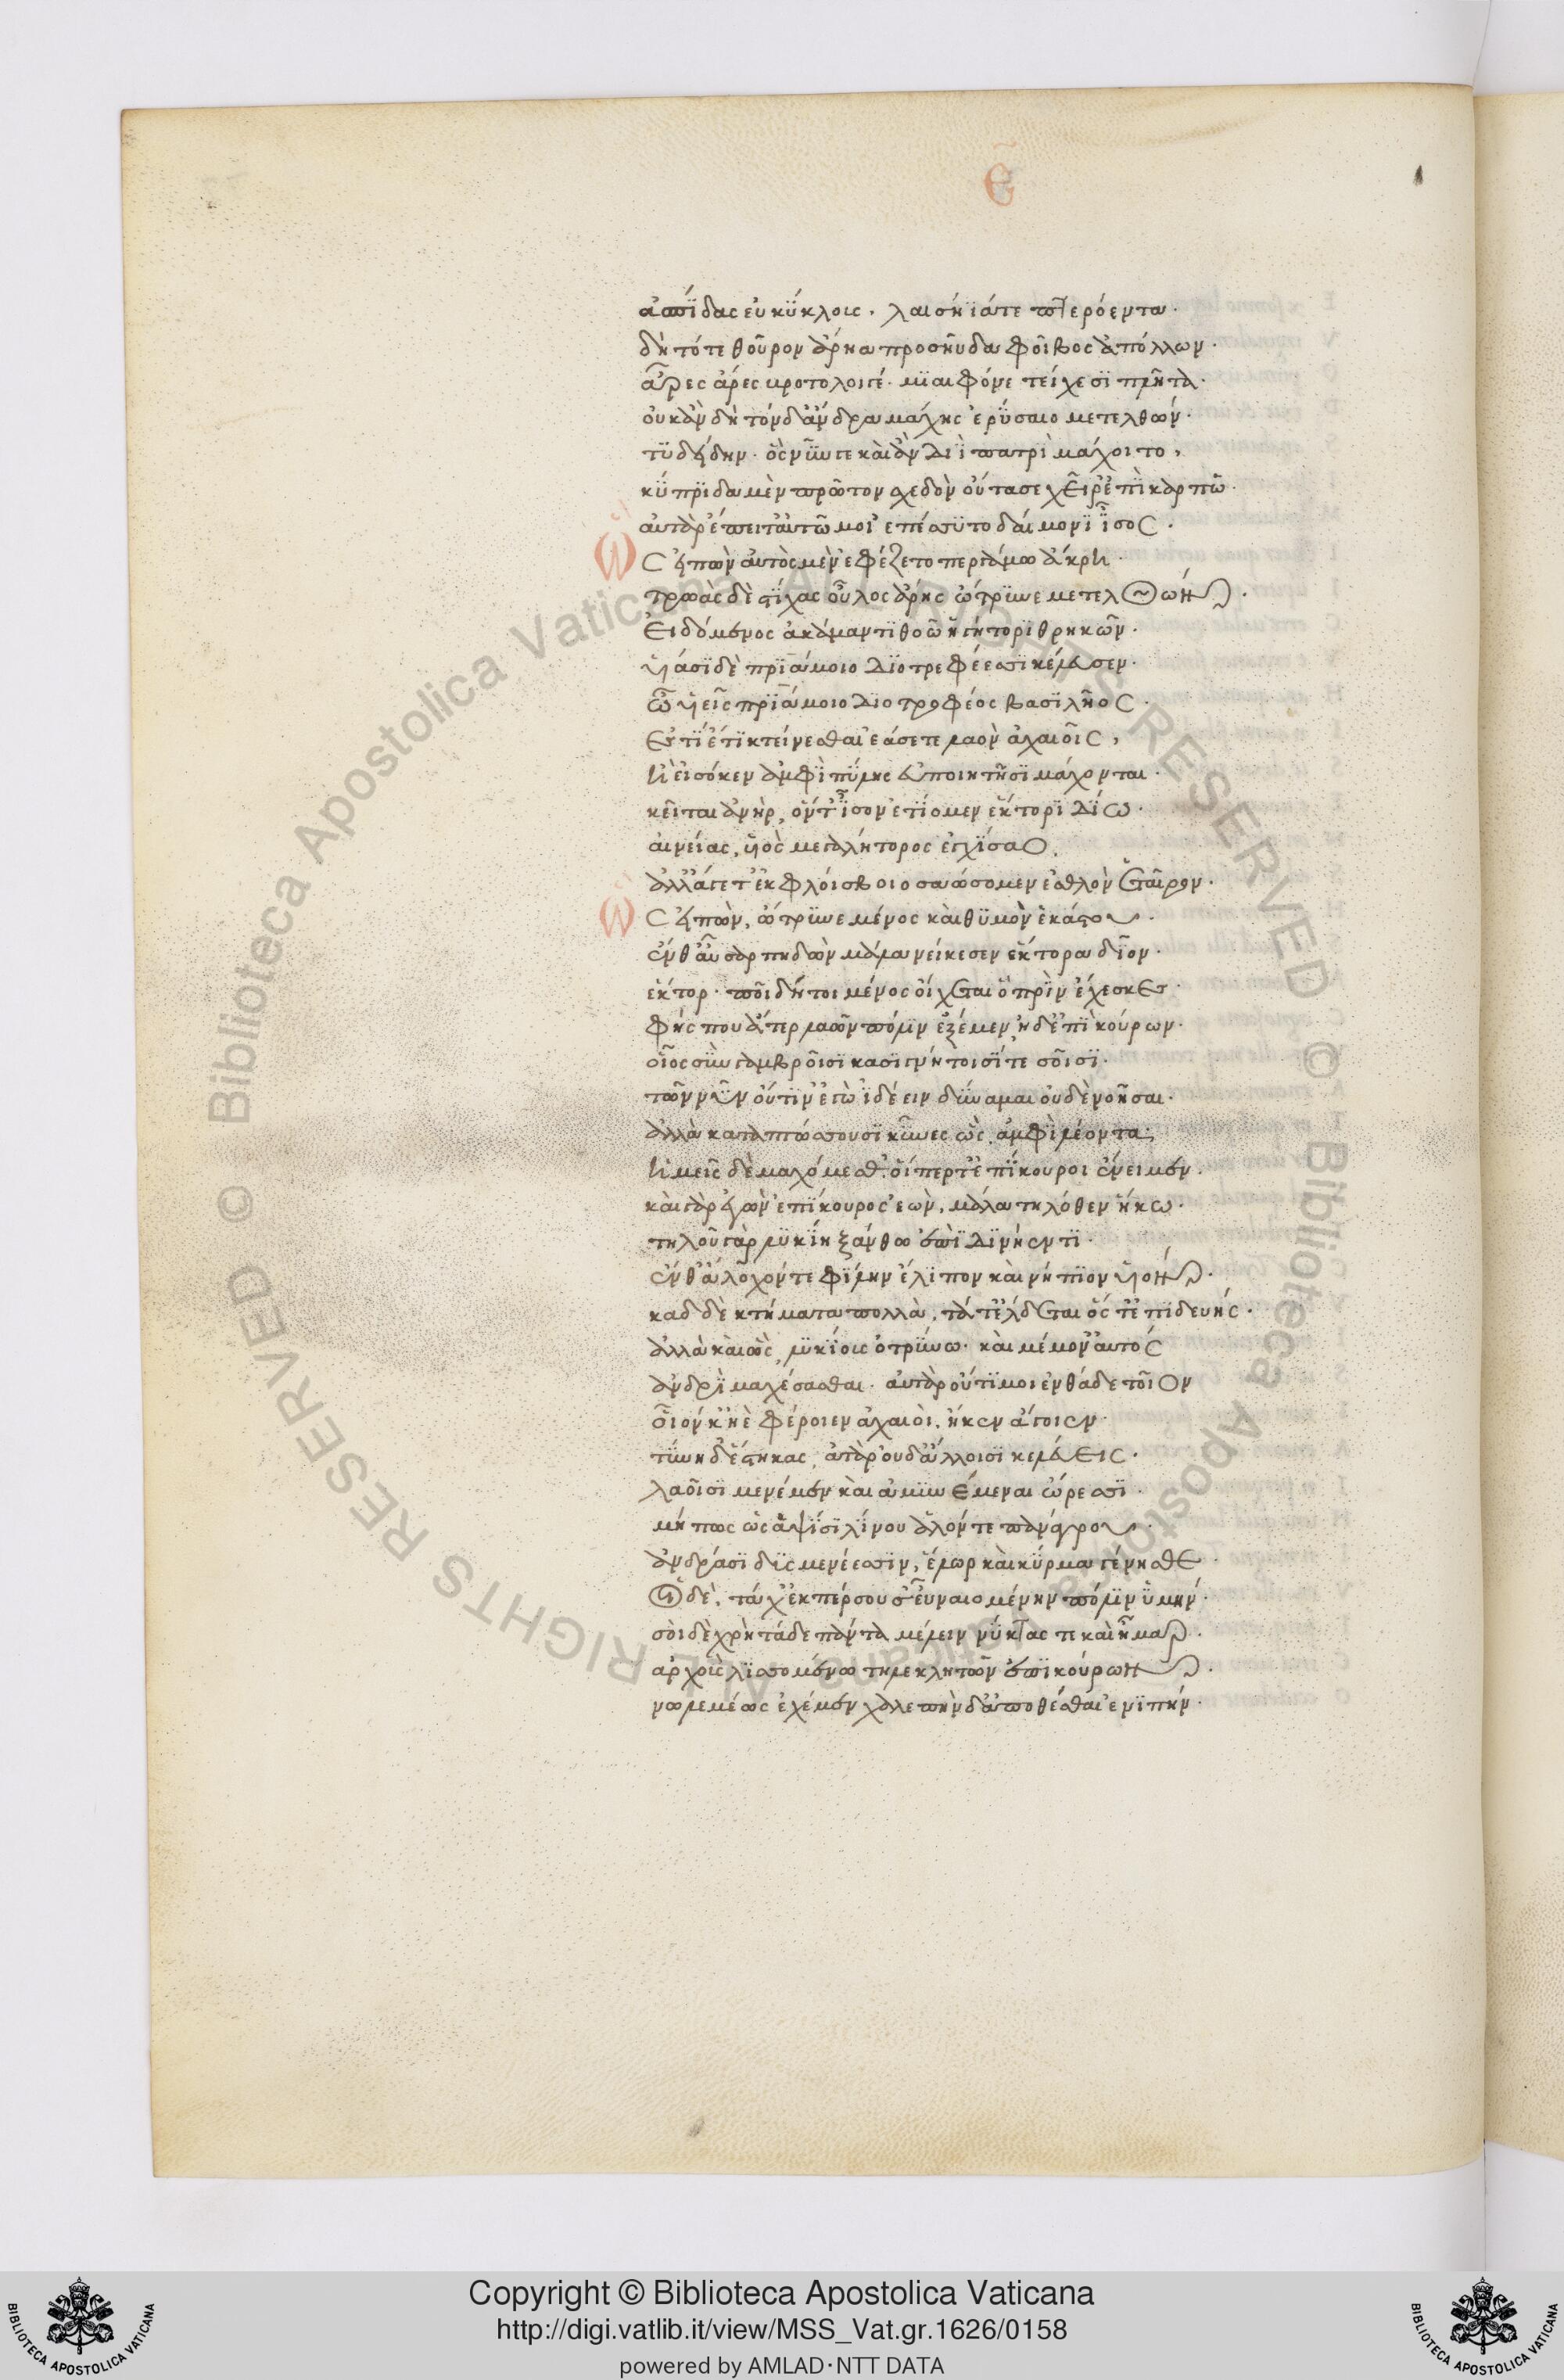 ε
ἀσπίδας εὐκύκλους. λαισήϊά τε πτερόεντα.
δὴ τότε θοῦρον ἄρηα προσηύδα φοῖβος ἀπόλλων.
ἆρες ἄρες βροτολοιγέ. μιαιφόνε τειχεσιπλῆτα.
οὐκ ἂν δὴ τόνδ' ἄνδρα μάχης ἐρύσαιο μετελθών.
τυδείδην. ὃς νῦν γε καὶ ἂν Διῒ πατρὶ μάχοιτο,
κύπριδα μὲν πρῶτον σχεδὸν οὔτασε χεῖρ' ἐπὶ καρπῷ.
αὐτὰρ ἔπειτ' αὐτῷ μοι ἐπέσσυτο δαίμονι ἶσος.
Ὣς εἰπὼν αὐτὸς μὲν ἐφέζετο περγάμῳ ἄκρῃ.
τρῶας δὲ στίχας οὖλος ἄρης ὤτρυνε μετελθών.
εἰδόμενος ἀκάμαντι θοῷ ἡγήτορι θρῃκῶν.
υἱάσι δὲ πριάμοιο Διοτρεφέεσσι κέλευσεν.
ὦ υἱεῖς πριάμοιο Διοτρεφέος βασιλῆος.
ἐς τί ἔτι κτείνεσθαι ἐάσετε λαὸν ἀχαιοῖς,
ἢ εἰσόκεν ἀμφὶ πύλῃς εὐποιητῇσι μάχονται.
κεῖται ἀνὴρ, ὅν τ' ἶσον ἐτίομεν ἕκτορι Δίῳ.
αἰνείας, υἱὸς μεγαλήτορος ἀγχίσαο.
ἀλλ' ἄγετ' ἐκ φλοίσβοιο σαώσομεν ἐσθλὸν ἑταῖρον.
Ὣς εἰπὼν, ὤτρυνε μένος καὶ θυμὸν ἑκάστου.
ἔνθ' αὖ σαρπηδὼν μάλα νείκεσεν ἕκτορα δῖον.
ἕκτορ. πῇ δή τοι μένος οἴχεται ὃ πρὶν ἔχεσκες.
φῄς που ἄτερ λαῶν πόλιν ἑξέμεν ἠδ' ἐπικούρων.
οἶος σὺν γαμβροῖσι κασιγνήτοισί τε σοῖσι.
τῶν νῦν οὔτιν' ἐγὼ ἰδέειν δύναμαι οὐδὲ νοῆσαι.
ἀλλὰ καταπτώσσουσι κύνες ὣς, ἀμφὶ λέοντα.
ἡμεῖς δὲ μαχόμεσθ' οἵπερ τ' ἐπίκουροι ἔνειμεν.
καὶ γὰρ ἐγὼν ἐπίκουρος ἐὼν, μάλα τηλόθεν ἥκω.
τηλοῦ γὰρ λυκίη ξάνθῳ ἐπὶ Δινήεντι.
ἔνθ' ἄλοχόν τε φίλην ἔλιπον καὶ νήπιον υἱόν.
καδδὲ κτήματα πολλὰ, τά τ' ἔλδεται ὅς τ' ἐπιδευής.
ἀλλὰ καὶ ὣς, λυκίους ὀτρύνω. καὶ μέμον' αὐτὸς
ἀνδρὶ μαχέσασθαι. ἀτὰρ οὔτι μοι ἐνθάδε τοῖον
οἷόν κ' ἠὲ φέροιεν ἀχαιοὶ. ἤ κεν ἄγοιεν.
τύνη δ' ἕστηκας, ἀτὰρ οὐδ' ἄλλοισι κελεύεις.
λαοῖσι μενέμεν καὶ ἀμυνέμεναι ὤρεσσι.
μή πως ὡς ἀψῖσι λίνου ἁλόντε πανάγρου.
ἀνδράσι δυσμενέεσσιν, ἕλωρ καὶ κύρμα γένησθε.
οἱ δὲ, τάχ' ἐκπέρσουσ' εὖ ναιομένην πόλιν ὑμήν.
σοὶ δὲ χρὴ τάδε πάντα μέλειν νύκτας τε καὶ ἦμαρ.
ἀρχοὺς λισσομένῳ τηλεκλητῶν ἐπικούρων.
νωλεμέως ἐχέμεν χαλεπὴν δ' ἀποθέσθαι ἐνιπήν.
Copyright © Biblioteca Apostolica Vaticana
http://digi.vatlib.it/view/MSS_Vat.gr.1626/0158
powered by AMLAD·NTT DATA